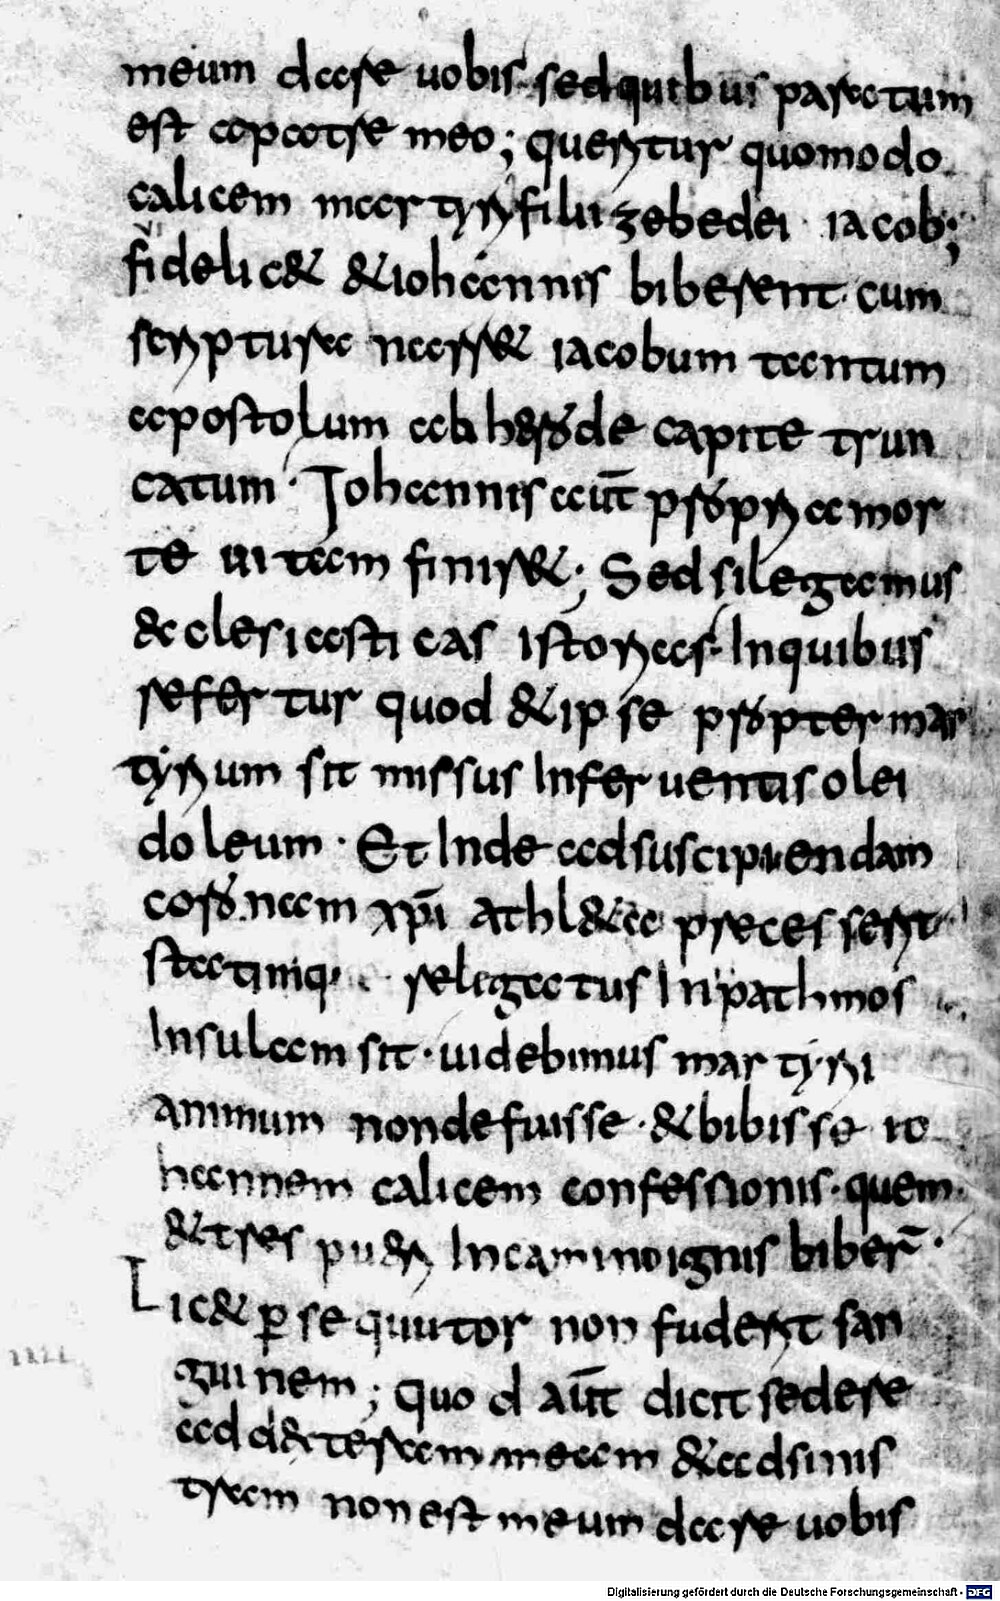 meum dare uobis · sed quibus paratum
est apatre meo ; queritur quomodo
calicem martyrii filii zebedei · iacob;
fidelic& &iohannis biberent · cum
scriptura narr& iacobum tantum
apostolum ab herode capite trun
catum · Iohannis aut̄ propria mor
te uitam finier& ; Sed si legamus
&clesiasticas istorias · In quibus
refertur quod &ipse propter mar
tyrium sit missus In feruentis olei
doleum · Et Inde ad suscipiendam
coronam xp̄i athl&a processerit
statimq; relegatus In pathmos
Insulam sit · uidebimus martyri
animum non defuisse · &bibisse io
hannem calicem confessionis · quem
&tres pueri In camino ignis biber̄ ·
Lic& p̱sequutor non fuderit san
guinem ; Quod aut̄ dicit sedere
ad d&teram meam &ad sinis
tram non est meum dare uobis
Digitalisierung gefördert durch die Deutsche Forschungsgemeinschaft - DFG